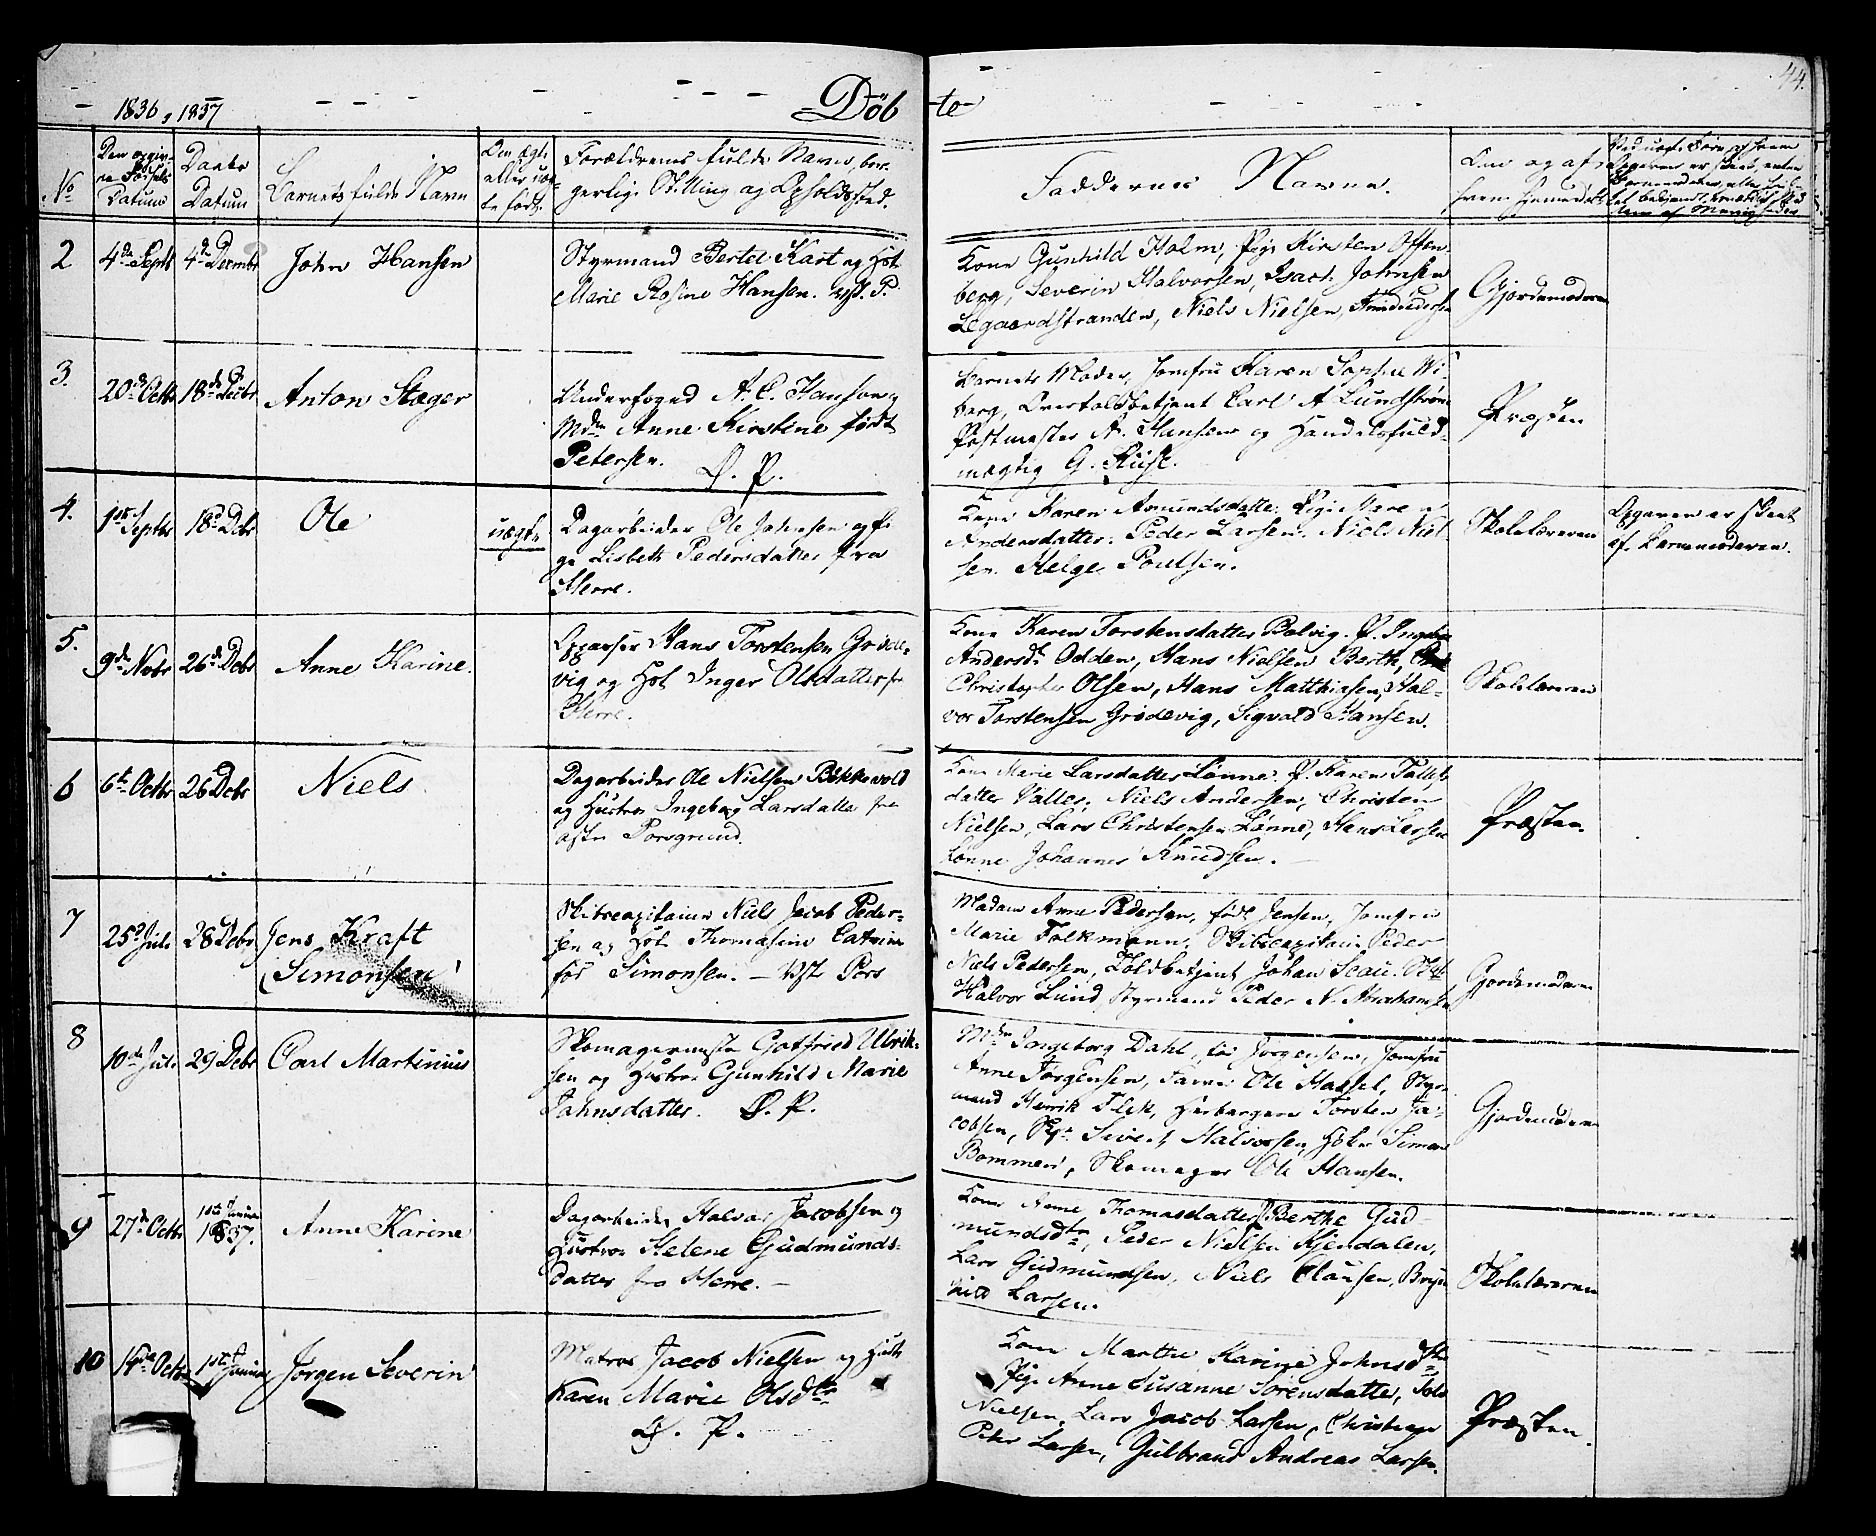 44.
1836, 1837
Døb te
No
Datum
Datum
Barnets fulde Navn
Forældrenes fulde Navn, bor-
gerlige Stilling og Opholdssted.
Faddernes Navne.
2
4de Septb
4de Decmbr
John Hansen
Styrmand Bertel Kast og Hst
Marie Rosine Hansen. vest. P.
Kone Gunhild Holm, Pige Kirsten Offen
berg, Severin Halvorsen, Isach Johnsen
Legaardstranden, Niels Nielsen,
Gjordemoderen
3.
20de Octb
18de Decbr
Anton Stæger
Underfoged A. C. Hansen og
Mdm Anne Kirstine født
Petersen.
Ø. P.
Barnets Moder, Jomfru Karen Sophie Wi
berg, Overtoldbetjent Carl A Lundstrøm
Postmester N. Hansen og Handelsfuld-
mægtig G. Riise.
Præsten
4.
1ste Septbr
18de Debr
Ole
uægte
Dagarbeider Ole Johnsen og Pi
ge Lisbeth Pedersdatter fra
Herre.
Kone Karen Amundsdatter. Pige Maren
Andersdatter. Peder Larsen. Niels Niel
sen. Helge Poulsen.
Skolelæreren
Opgaven er skeet
af Barnemoderen.
5.
9de Nobr
26de Debr
Anne Karine.
Hans Torstensen Grøde-
vig og Hst Inger Olsdatter fra
Herre.
Kone Karen Torstensdatter Bolvig. P. Ingebor
Andersdt. Odden, Hans Nielsen Berth,
Christopher Olsen, Hans Matthiasen, Hal-
vor Torstensen Grødevig, Sigvald Hansen.
Skolelæreren
6
6te Octbr
26 Debr
Niels
Dagarbeider Ole Nielsen Bekkevold
og Hustroe Ingeborg Larsdatter fra
østre Porsgrund.
Kone Marie Larsdatter Lønne. P. Karen
datter Valler. Niels Andersen, Christen
Nielsen, Lars Christensen Lønne, Hans Larsen
Lønne Johannes Knudsen.
Præsten
7
25de Juli
28 Debr
Jens Kraft
(Simonsen)
Skibscapitaine Niels Jacob Peder-
sen og Hst. Thomasine Catrine
fød Simonsen. - Vst Pors
Madam Anne Pedersen, født Jensen, Jomfru
Marie Folkmann, Skibscapitain Peder
Niels Pedersen, Toldbetjent Johan Scau.
Halvor Lund, Styrmand Peder N. Abrahamsen
Gjordemoderen
8
10de Juli
29 Debr
Carl Martinius
Skomagermester Gotfried Ulrik-
sen og Hustroe Gunhild Marie
Johnsdatter. Ø. P.
Mdm Ingeborg Dahl, fød Jørgensen, Jomfru
Anne Jørgensen, Ole Hassel, Styr-
mand Henrik Flek, Herbergere Torsten Ja-
cobsen, Sivert Halvorsen, John Simon
Bommen, Skomager Ole Hansen.
Gjordemoderen
9
27de Octbr
1ste Januar
1837.
Anne Karine
Dagarbeider Halvor Jacobsen og
Hustroe Helene Gudmunds-
datter fra Herre. -
Kone Anne Thomasdatter P Berthe Gud-
mundsdtr, Peder Nielsen Kjendalen,
Lars Gudmundsen, Niels Clausen, Bryn
hild Larsen.
Skolelæreren
10
14de Octbr
1ste Januar
Jørgen Severin
Matros Jacob Nielsen og Hustr
Karen Marie Olsdtr
Ø. P.
Kone Marthe Karine Johnsdtr
Pige Anne Susanne Sørensdatter,
Nielsen, Lars Jacob Larsen, Christian
Peter Larsen, Gulbrand Andreas Larsen.
Præsten.